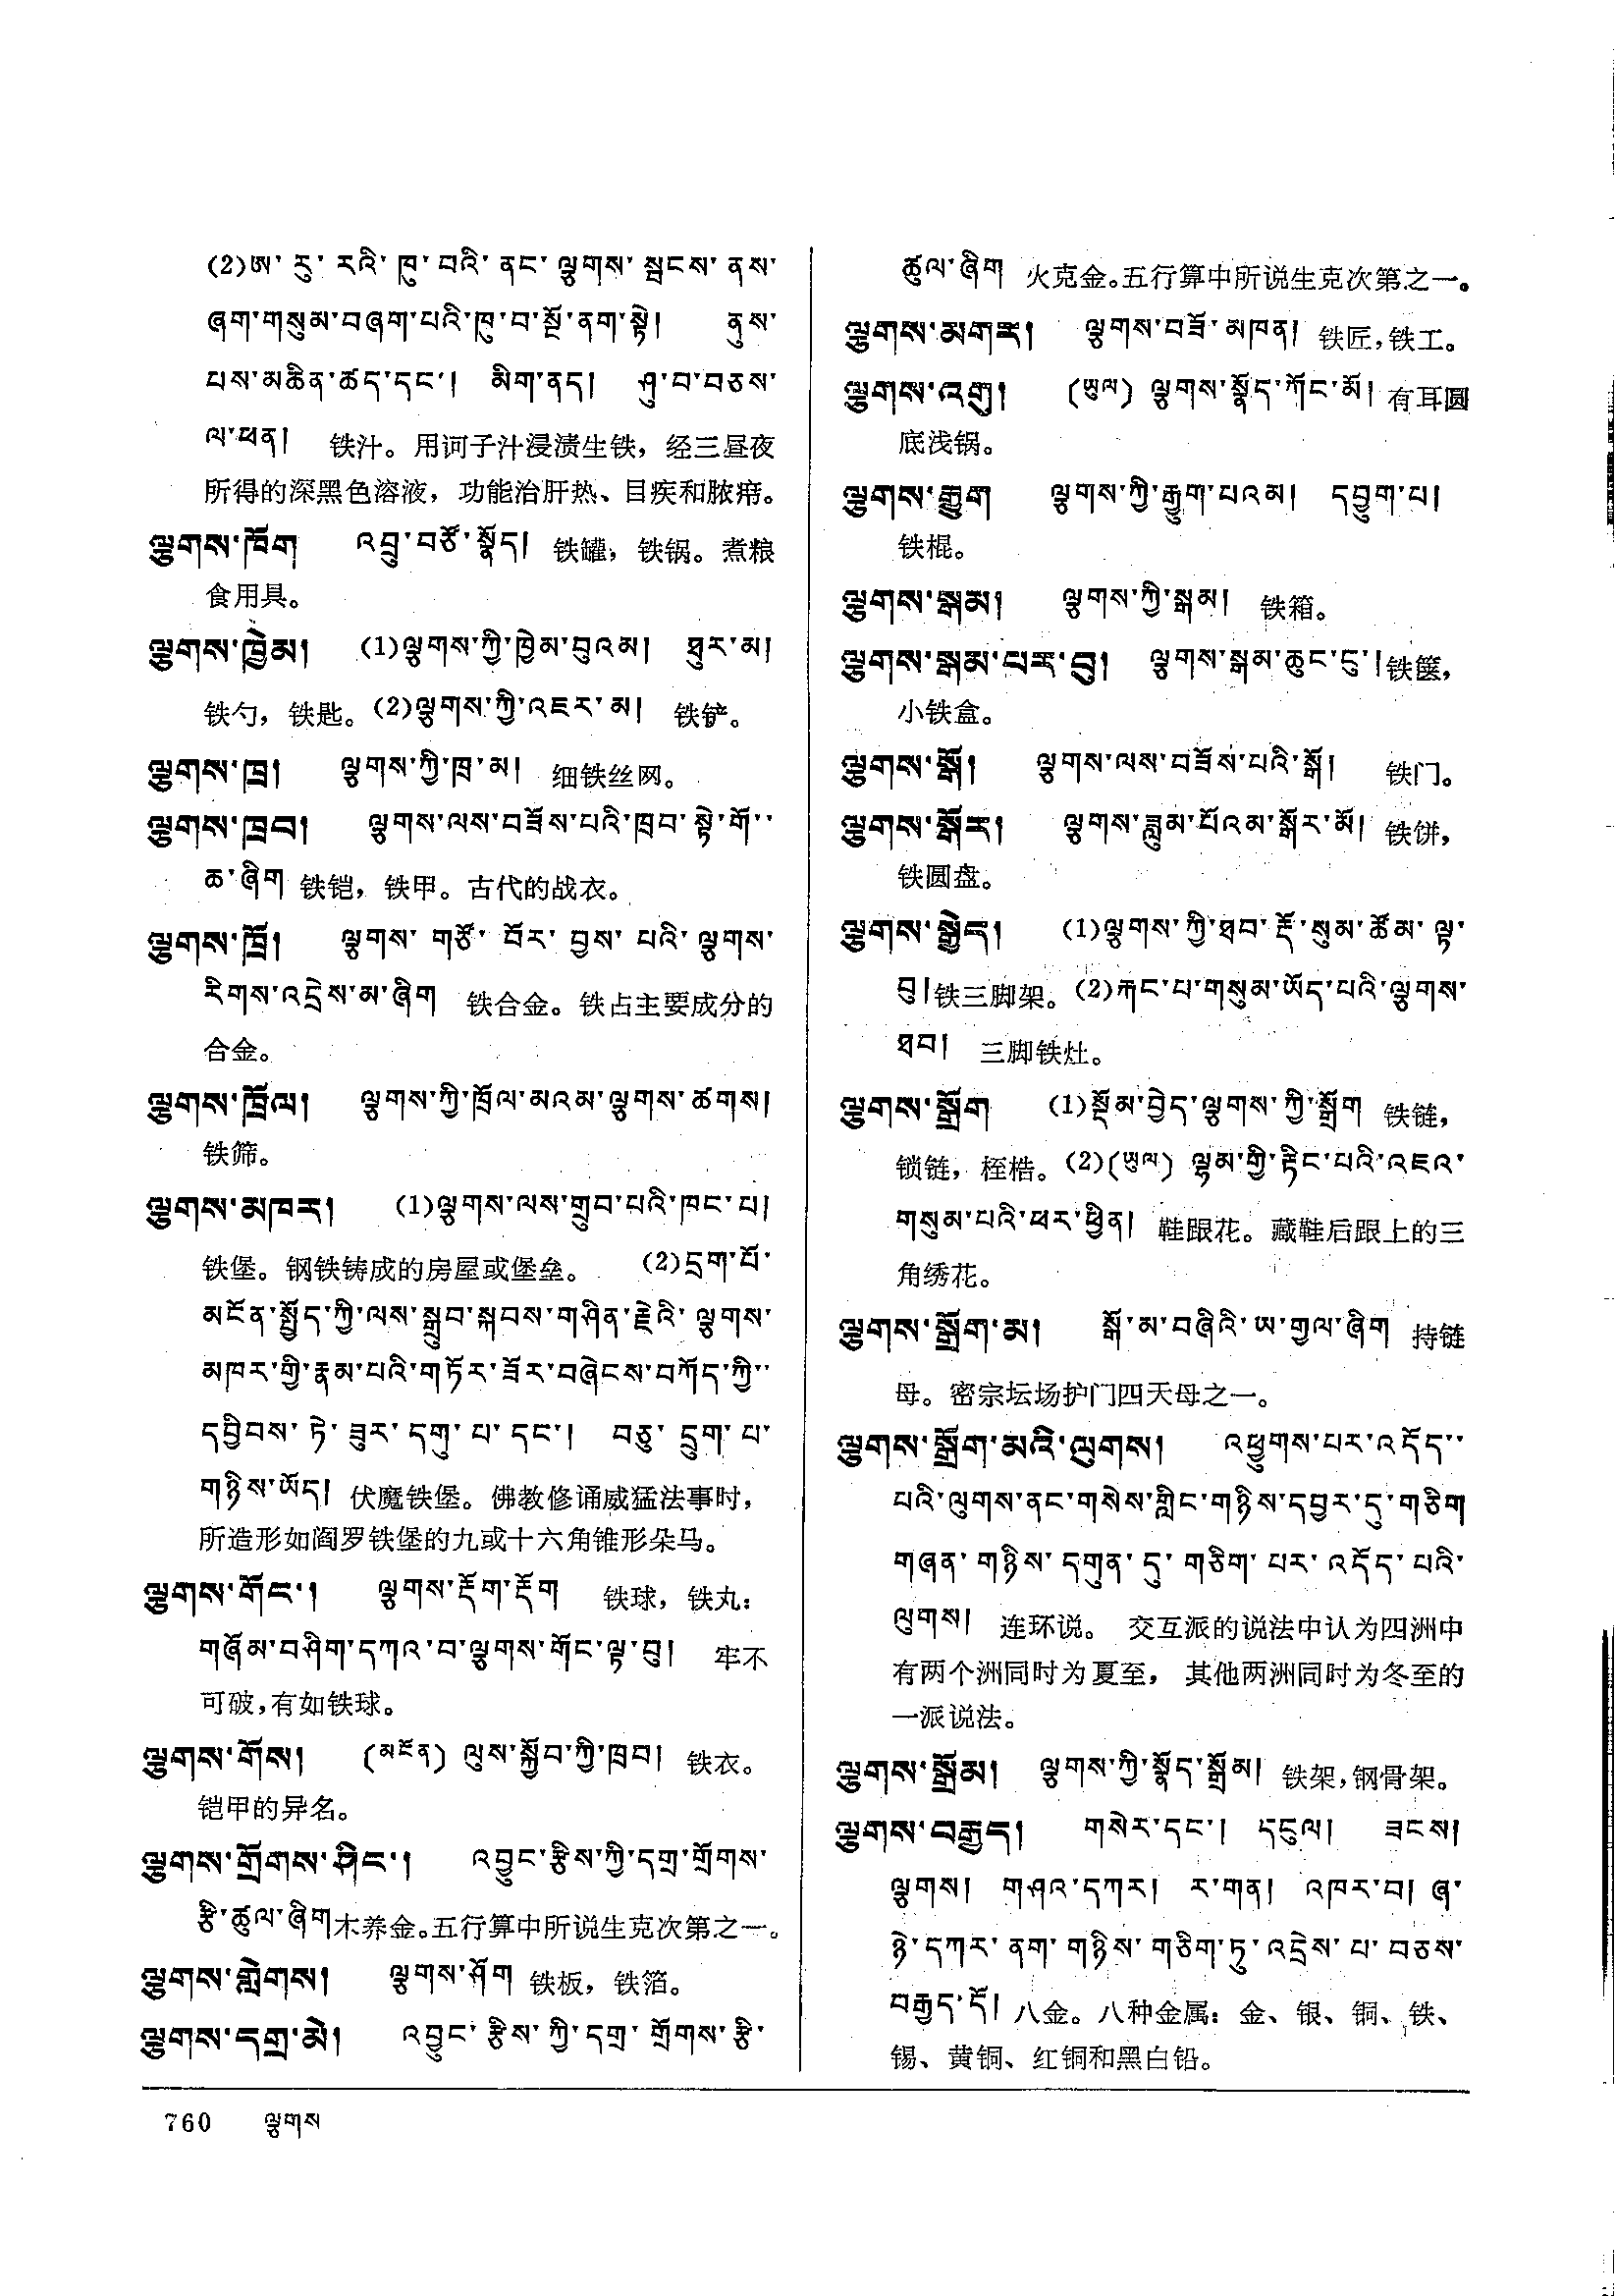 (2)ཨ་རུ་རའི་ཁུ་བའི་ནང་ལྕགས་སྦངས་ནས་
ཞག་གསུམ་བཞག་པའི་ཁུ་བ་སྔོ་ནག་སྟེ། ནུས་
པས་མཆིན་ཚད་དང་། མིག་ནད། ཤུ་བ་བཅས་
ལ་ཕན། 铁汁。用诃子汁浸渍生铁，经三昼夜
所得的深黑色溶液，功能治肝热、目疾和脓疮。
ལྕགས་ཁོག འབྲུ་བཙོ་སྣོད། 铁罐，铁锅。煮粮
食用具。
ལྕགས་ཁྱེམ། (1)ལྕགས་ཀྱི་ཁྱེམ་བུའམ། ཐུར་མ།
铁勺，铁匙。(2)ལྕགས་ཀྱི་འཇར་མ། 铁铲。
ལྕགས་ཁྲ། ལྕགས་ཀྱི་ཁྲ་མ། 细铁丝网。
ལྕགས་ཁྲབ། ལྕགས་ལས་བཟོས་པའི་ཁྲབ་སྟེ་གོ་
ཆ་ཞིག 铁铠，铁甲。古代的战衣。
ལྕགས་ཁྲོ། ལྕགས་གཙོ་བོར་བྱས་པའི་ལྕགས་
རིགས་འདྲེས་མ་ཞིག 铁合金。铁占主要成分的
合金。
ལྕགས་ཁྲོལ། ལྕགས་ཀྱི་ཁྲོལ་མའམ་ལྕགས་ཚགས།
铁筛。
ལྕགས་མཁར། (1)ལྕགས་ལས་གྲུབ་པའི་ཁང་པ།
铁堡。钢铁铸成的房屋或堡垒。 (2)དྲག་པོ་
མངོན་སྤྱོད་ཀྱི་ལས་སྒྲུབ་སྐབས་གཤིན་རྗེའི་ལྕགས་
མཁར་གྱི་རྣམ་པའི་གཏོར་ཟོར་བཞེངས་བཀོད་ཀྱི་
དབྱིབས་ཏེ་ཟུར་དགུ་པ་དང་། བཅུ་དྲུག་པ་
གཉིས་ཡོད། 伏魔铁堡。佛教修诵威猛法事时，
所造形如阎罗铁堡的九或十六角锥形朵马。
ལྕགས་གོང་། ལྕགས་རྡོག་རྡོག 铁球，铁丸：
གཞོམ་བཤིག་དཀའ་བ་ལྕགས་གོང་ལྟ་བུ། 牢不
可破，有如铁球。
ལྕགས་གོས། (མངོན) ལུས་སྐྱོབ་ཀྱི་ཁྲབ། 铁衣。
铠甲的异名。
ལྕགས་གྲོགས་ཤིང་། འབྱུང་རྩིས་ཀྱི་དགྲ་གྲོགས་
རྩི་ཚུལ་ཞིག 木养金。五行算中所说生克次第之一。
ལྕགས་གླེགས། ལྕགས་ཤོག 铁板，铁箔。
ལྕགས་དགྲ་མེ། འབྱུང་རྩིས་ཀྱི་དགྲ་གྲོགས་རྩི་
ཚུལ་ཞིག 火克金。五行算中所说生克次第之一。
ལྕགས་མགར། ལྕགས་བཟོ་མཁན། 铁匠，铁工。
ལྕགས་འགུ། (ཡུལ) ལྕགས་སྣོད་ཀོང་མོ། 有耳圆
底浅锅。
ལྕགས་རྒྱུག ལྕགས་ཀྱི་རྒྱུག་པའམ། དབྱུག་པ།
铁棍。
ལྕགས་སྒམ། ལྕགས་ཀྱི་སྒམ། 铁箱。
ལྕགས་སྒམ་པར་བུ། ལྕགས་སྒམ་ཆུང་ངུ་། 铁箧，
小铁盒。
ལྕགས་སྒོ། ལྕགས་ལས་བཟོས་པའི་སྒོ། 铁门。
ལྕགས་སྒོར། ལྕགས་ཟླུམ་པོའམ་སྒོར་མོ། 铁饼，
铁圆盘。
ལྕགས་སྒྱེད། (1)ལྕགས་ཀྱི་ཐབ་རྡོ་སུམ་ཚོམ་ལྟ་
བུ། 铁三脚架。(2)རྐང་པ་གསུམ་ཡོད་པའི་ལྕགས་
ཐབ། 三脚铁灶。
ལྕགས་སྒྲོག (1)སྡོམ་བྱེད་ལྕགས་ཀྱི་སྒྲོག 铁链，
锁链，桎梏。(2)(ཡུལ) ལྷམ་གྱི་རྟིང་པའི་འཇའ་
གསུམ་པའི་ཕར་ཕྱིན། 鞋跟花。藏鞋后跟上的三
角绣花。
ལྕགས་སྒྲོག་མ། སྒོ་མ་བཞིའི་ཨ་གྱལ་ཞིག 持链
母。密宗坛场护门四天母之一。
ལྕགས་སྒྲོག་མའི་ལུགས། འཕྱུགས་པར་འདོད་
པའི་ལུགས་ནང་གསེས་གླིང་གཉིས་དབྱར་དུ་གཅིག
གཞན་གཉིས་དགུན་དུ་གཅིག་པར་འདོད་པའི་
ལུགས། 连环说。 交互派的说法中认为四洲中
有两个洲同时为夏至， 其他两洲同时为冬至的
一派说法。
ལྕགས་སྒྲོམ། ལྕགས་ཀྱི་སྣོད་སྒྲོམ། 铁架，钢骨架。
ལྕགས་བརྒྱད། གསེར་དང་། དངུལ། ཟངས།
ལྕགས། གཤའ་དཀར། ར་གན། འཁར་བ། ཞ་
ཉེ་དཀར་ནག་གཉིས་གཅིག་ཏུ་འདྲེས་པ་བཅས་
བརྒྱད་དོ། 八金。八种金属：金、银、铜、铁、
锡、黄铜、红铜和黑白铅。
760 ལྕགས